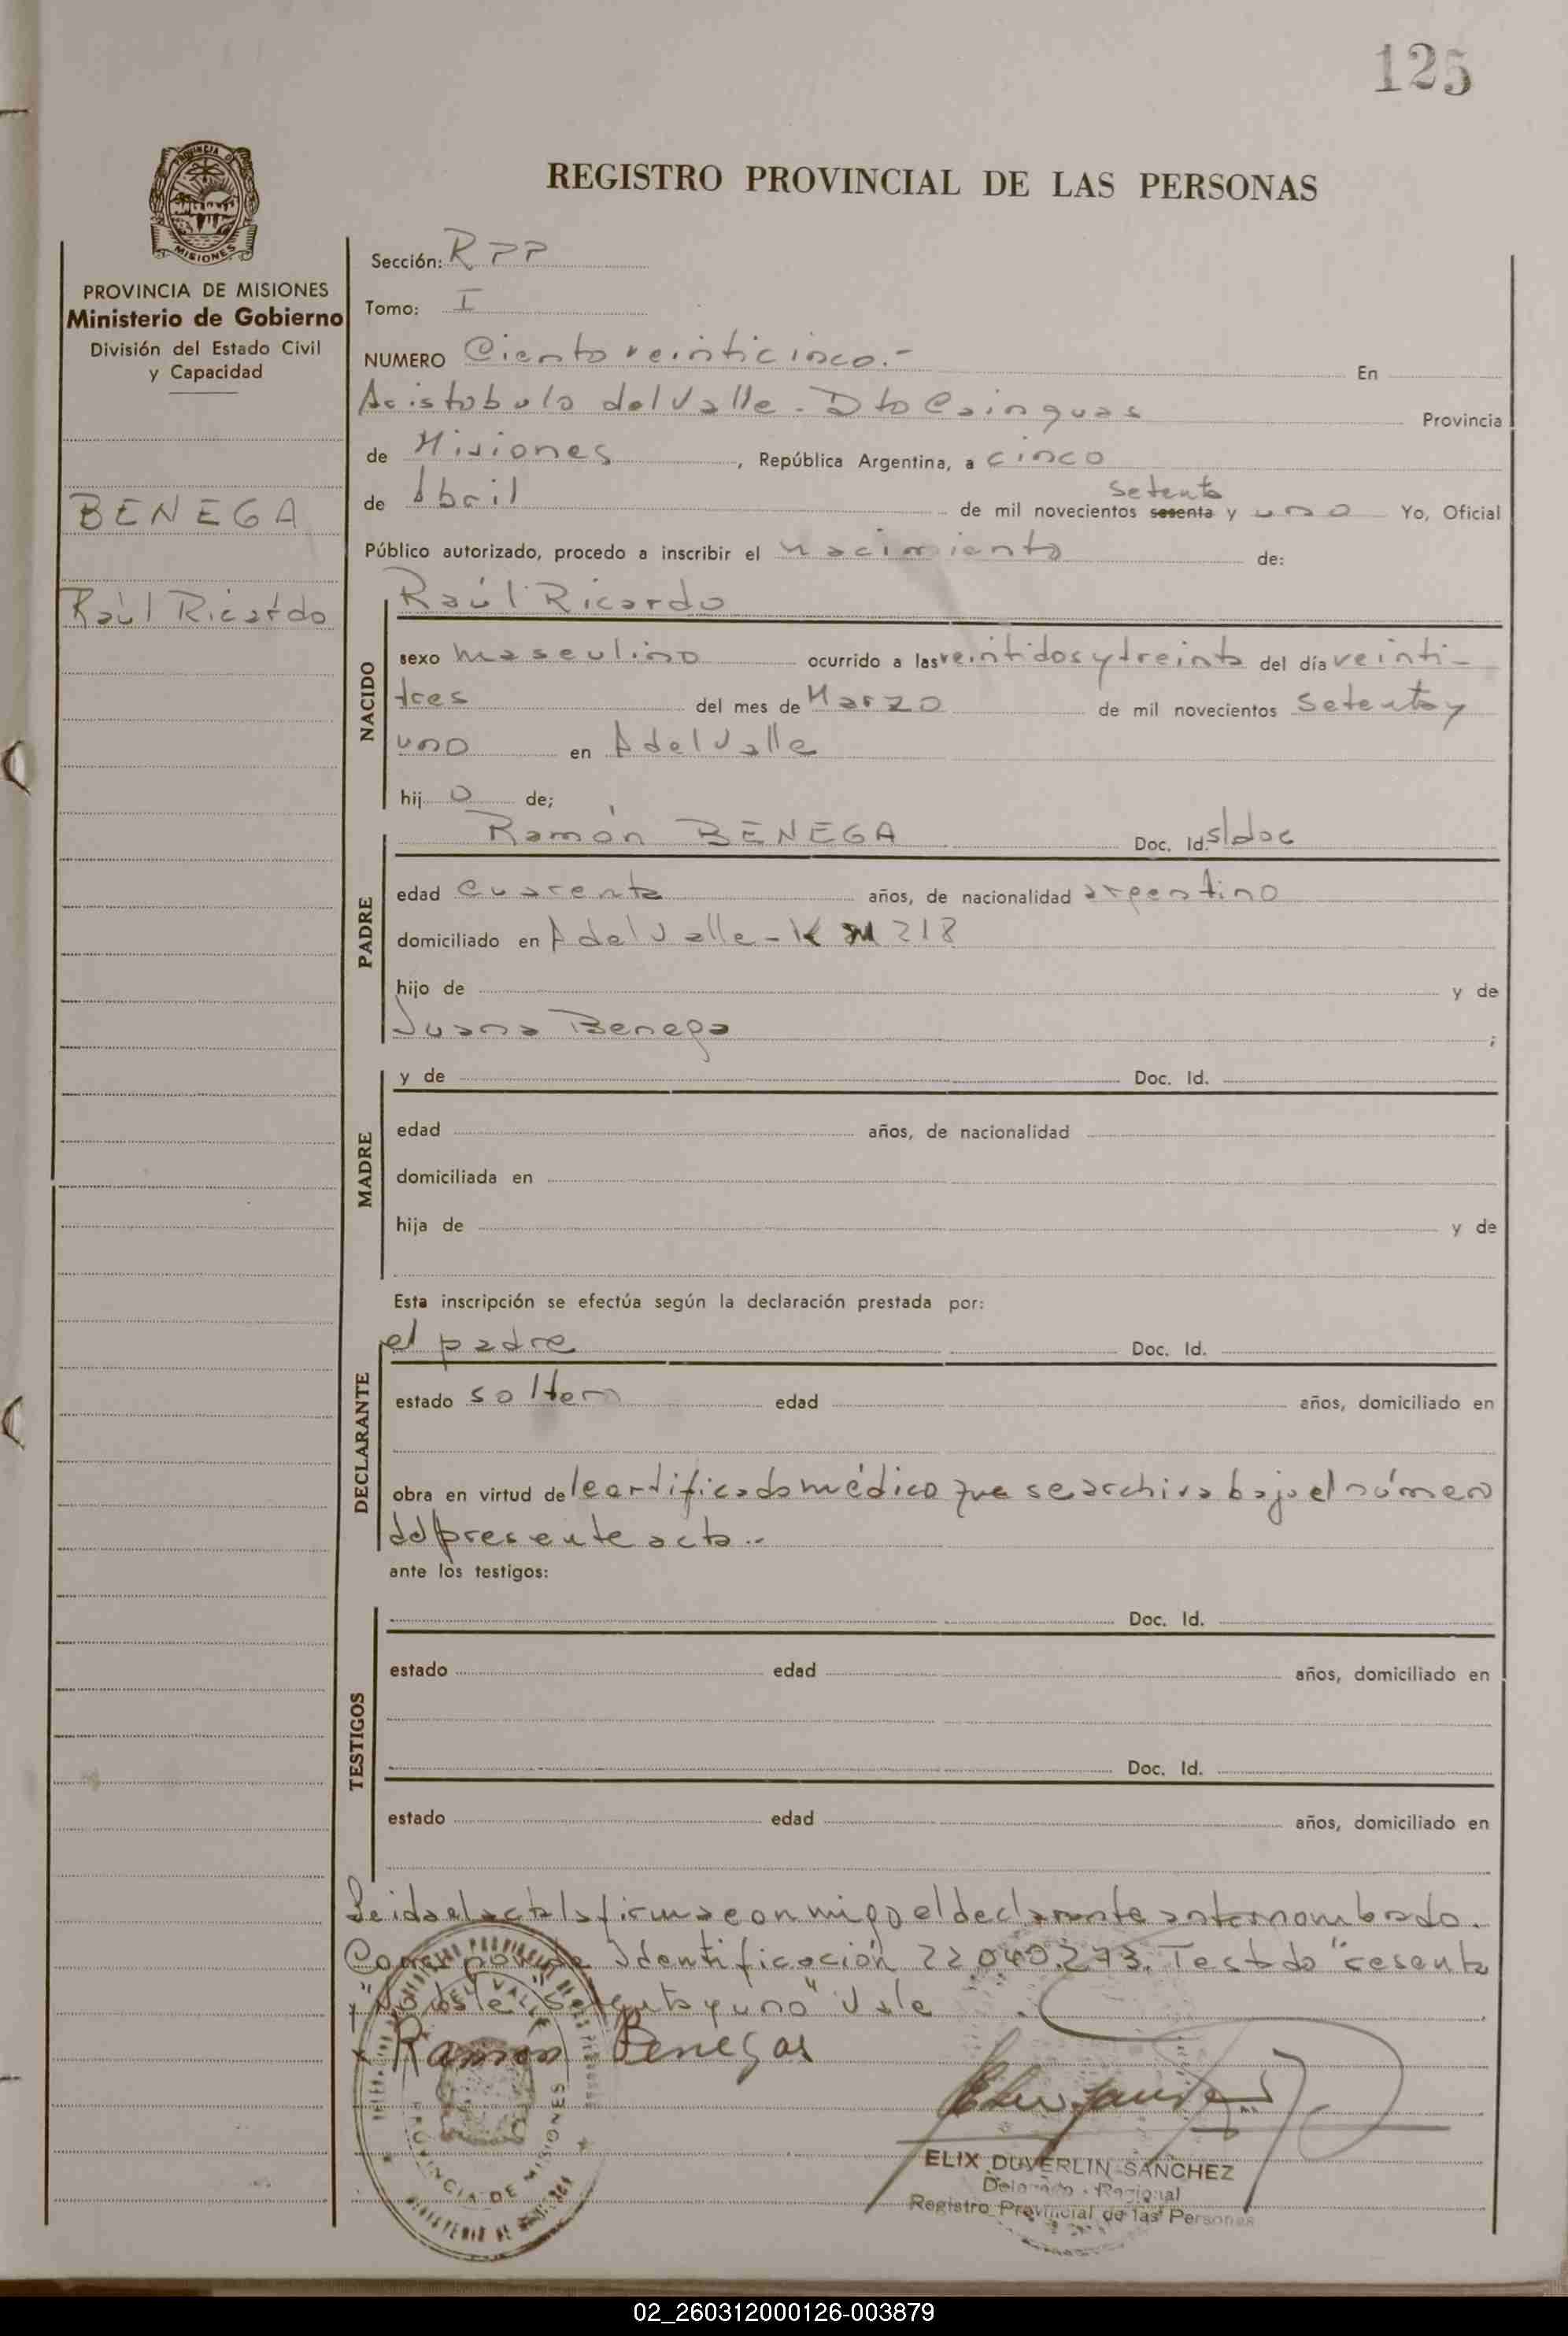 125
PROVINCIA DE
MISIONES
REGISTRO PROVINCIAL DE LAS PERSONAS
PROVINCIA DE MISIONES
Ministerio de Gobierno
División del Estado Civil
y Capacidad
BENEGA
Raúl Ricardo
Sección: RPP
Tomo: I
NUMERO Ciento veinticinco.- En
Aristobulo del Valle - Dto Cainguas Provincia
de Misiones, República Argentina, a cinco
setenta
de Abril de mil novecientos sesenta y uno Yo, Oficial
Público autorizado, procedo a inscribir el nacimiento de:
NACIDO
Raúl Ricardo
sexo masculino ocurrido a las veintidos y treinta del día veinti-
tres del mes de Marzo de mil novecientos setenta y
uno en A del Valle
hijo de;
PADRE
Ramón BENEGA Doc. Id. s/doc
edad cuarenta años, de nacionalidad argentino
domiciliado en A del Valle - KM 218
hijo de y de
Juana Benega ;
MADRE
y de Doc. Id.
edad años, de nacionalidad
domiciliada en
hija de y de
Esta inscripción se efectúa según la declaración prestada por:
DECLARANTE
el padre Doc. Id.
estado soltero edad años, domiciliado en
obra en virtud del certificado médico que se archiva bajo el número
del presente acta.-
ante los testigos:
TESTIGOS
Doc. Id.
estado edad años, domiciliado en
Doc. Id.
estado edad años, domiciliado en
Leida el acta la firma conmigo el declarante antenombrado.
Identificación 22.040.273. Testado "sesenta
y uno" Vale
Ramon Benegas
PROVINCIA DE MISIONES
ELIX DUVERLIN SANCHEZ
Delegado Regional
Registro Provincial de las Personas
02_260312000126-003879